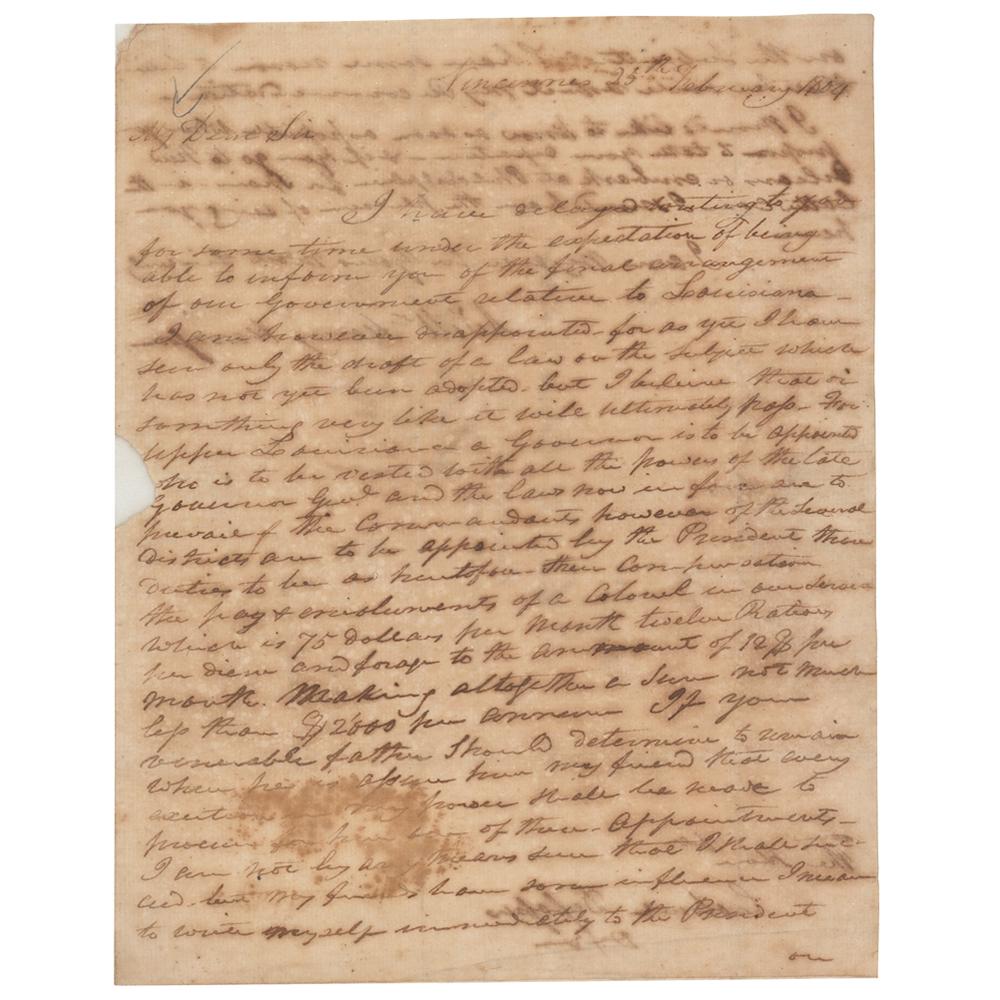 Vincennes 25th February 1804
My Dear Sir
I have delayed writing to you
for some time under the expectation of being
able to inform you of the final arrangement
of our Government relative to Louisiana -
I am however disappointed - for as yet I have
seen only the draft of a law on the subject which
has not yet been adopted - but I believe that or
something very like it will ultimately pass - For
upper Louisiana a Governor is to be appointed
who is to be vested with all the powers of the late
Governor Genl and the laws now in force are to
prevail the Commandants however of the several
districts are to be appointed by the President their
duties to be as heretofore - their Compensation
the pay & emoluments of a Colonel in our service
which is 75 dollars per month twelve Rations
per diem and forage to the amount of 12 $ per
month. Making altogether a sum not much
less than $1200 per annum If your
venerable father should determine to remain
where he is assure him my friend that every
exertion in my power shall be made to
procure for him one of these - Appointments -
I am not by any means sure that I shall suc-
ceed - but my friends have some influence I mean
to write myself immediately to the President
on